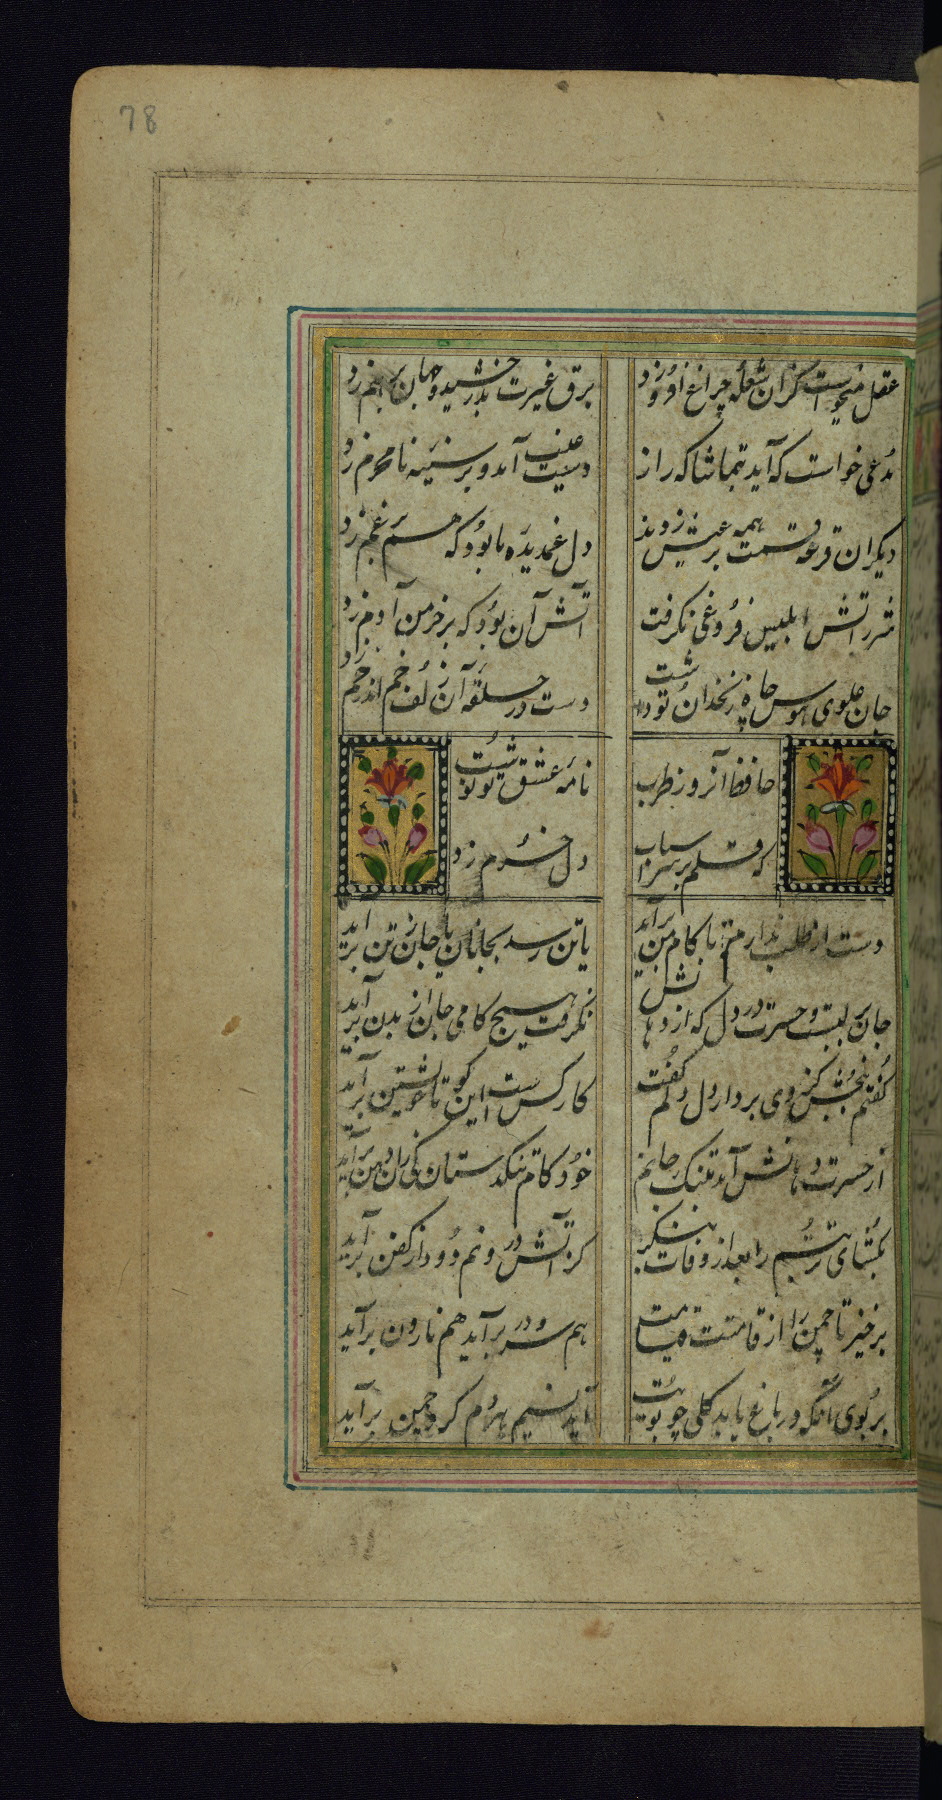 78
عقل میخواست کزان شعله چراغ افروزد برق غیرت بدرخشید و جهان برهم زد
مدعی خواست که آید بتماشاکه راز دست غیب آمد و بر سینه نامحرم زد
دیکران قرعه قسمت همه بر عیش زدند دل غمدیده ما بود که هم بر غم زد
آتش آن بود که بر خرمن آدم زد
جان علوی هوس چاه زنخدان تو داشت دست در حلقه آن زلف خم اندر خم زد
حافظ آنروز طرب نامه عشق تو نوشت
که قلم بر سر اسباب دل خرم زد
دست از طلب ندارم تا کام من برآید یا تن رسد بجانان یا جان ز تن برآید
جان بر لبست و حسرت در دل که از دهانش نکرفت هیچ کامی جان از بدن برآید
گفتم بخویش کز وی بردار دل دلم گفت کار کسیست این کو با خویشتن برآید
از حسرت دهانش آمد بتنک جانم خود کام تنکدستان کی زان دهن برآید
بکشای تربتم را بعد از وفات بنکر کز آتش درونم دود از کفن برآید
برخیز تا چمن را از قامتت قیامت هم سرو در بر آید هم نارون برآید
بر بوی آنکه در باغ یابد کلی چو رویت آید نسیم هر دم کرد چمن برآید